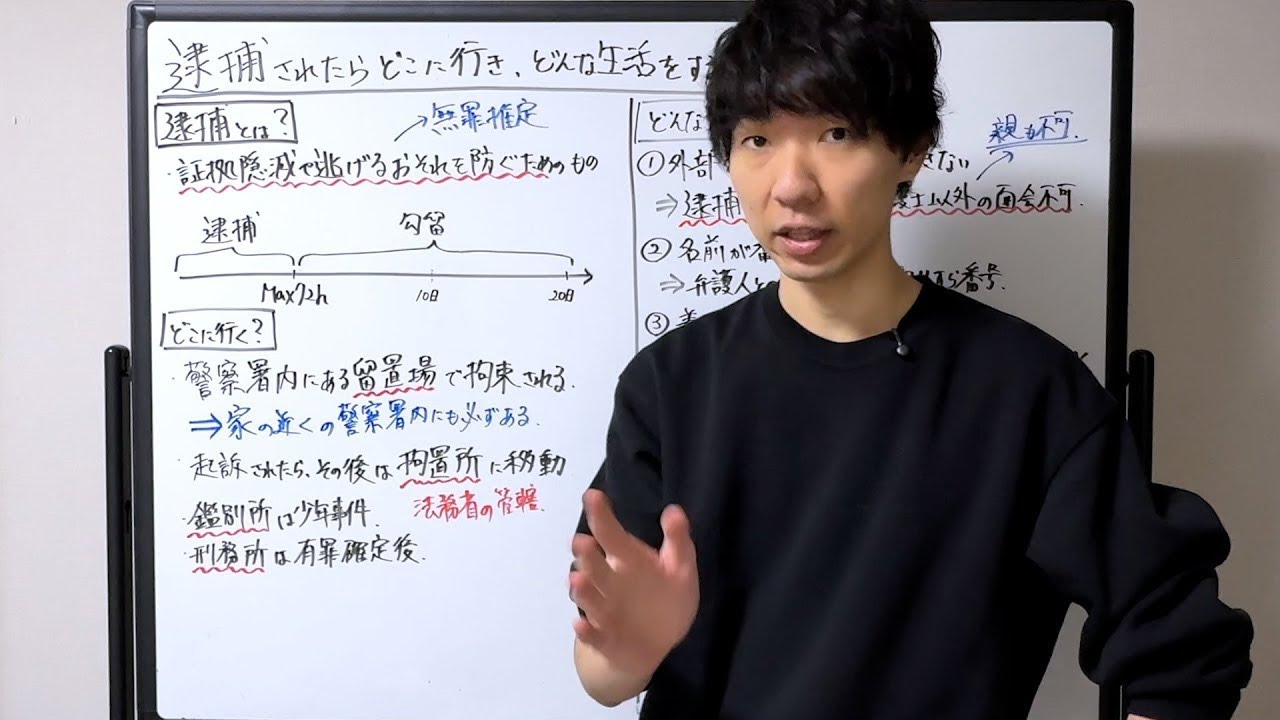 逮捕されたらどこに行き、どんな生活をす
逮捕とは?
→無罪推定
・証拠隠滅や逃げるおそれを防ぐためのもの
逮捕 勾留
Max72h 10日 20日
どこに行く?
・警察署内にある留置場で拘束される。
⇒家の近くの警察署内にも必ずある。
・起訴されたら、その後は拘置所に移動
・鑑別所は少年事件. 法務省の管轄.
・刑務所は有罪確定後.
どんな
親も不可.
①外部 きない
⇒逮捕 護士以外の面会不可.
②名前が番
⇒弁護人と すら番号.
③